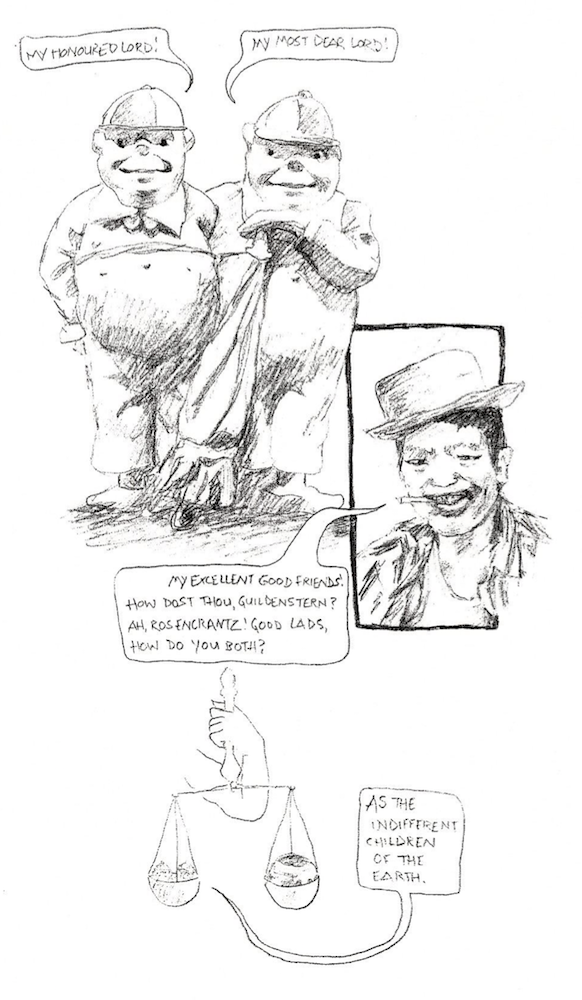 MY HONOURED LORD!
MY MOST DEAR LORD!
MY EXCELLENT GOOD FRIENDS!
HOW DOST THOU, GUILDENSTERN?
AH, ROSENCRANTZ! GOOD LADS,
HOW DO YOU BOTH?
AS THE
INDIFFERENT
CHILDREN
OF THE
EARTH.